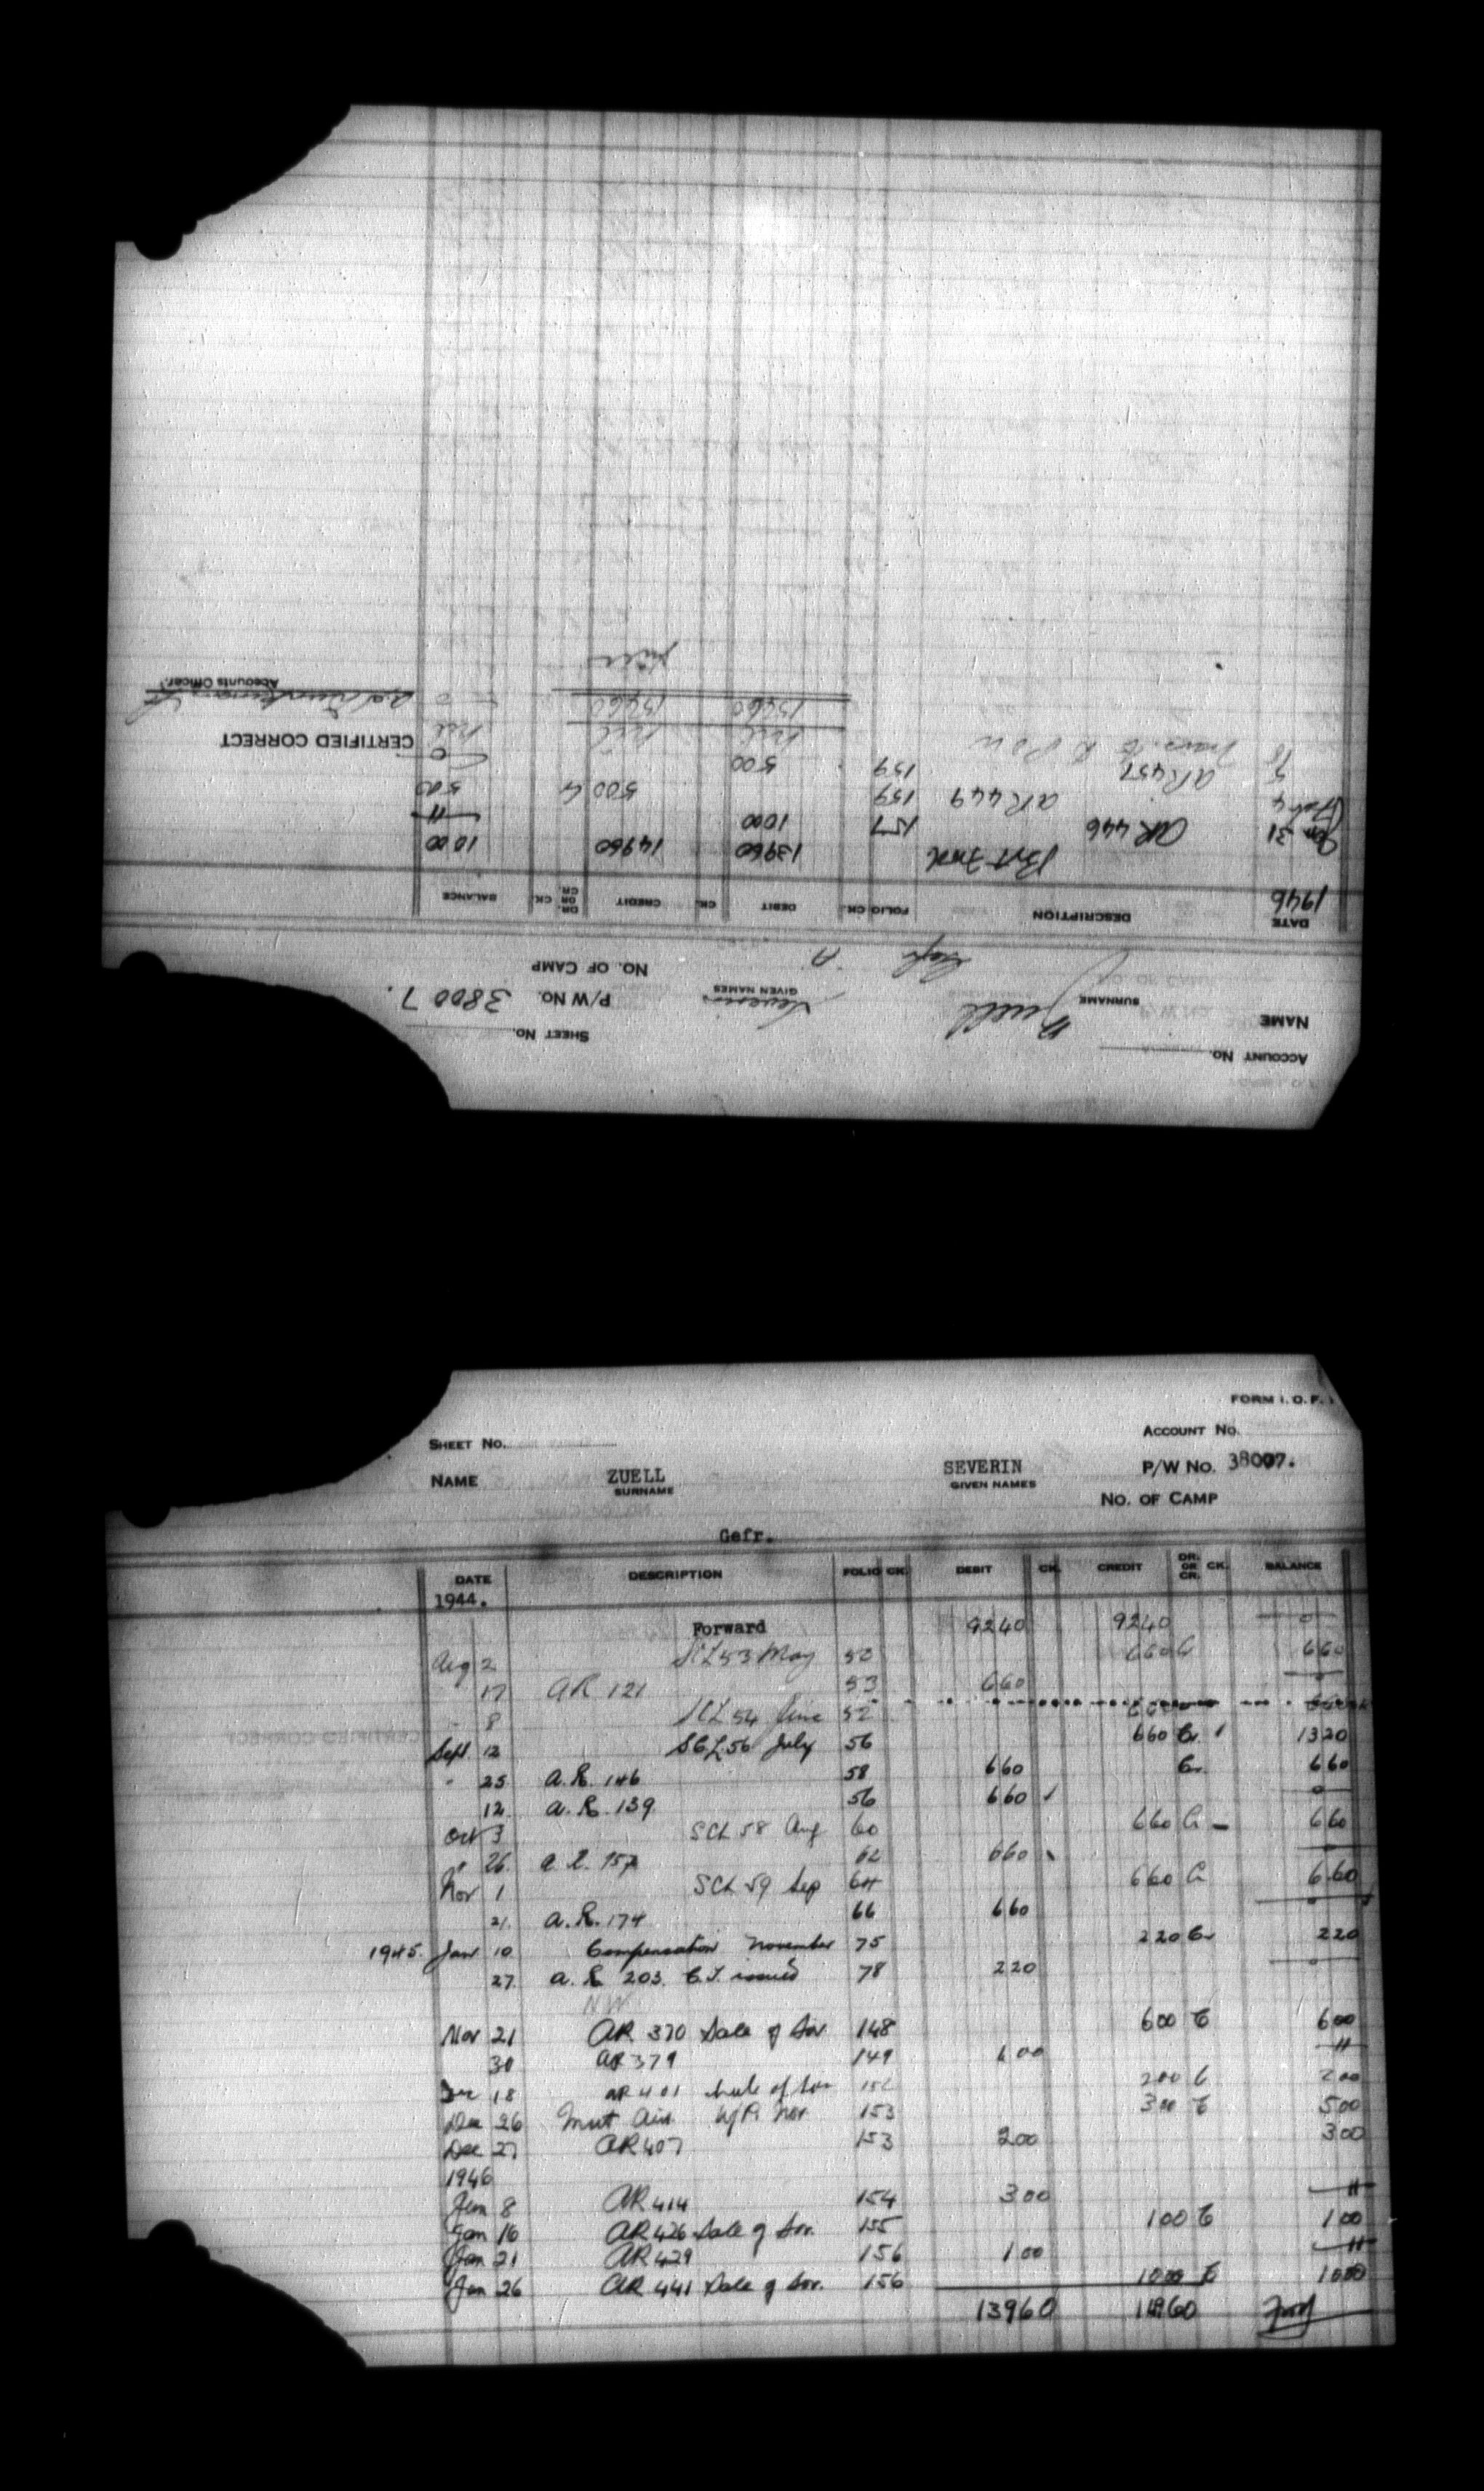 ACCOUNT No. SHEET No.
NAME Zuell SURNAME Severin GIVEN NAMES P/W No. 38007.
Gefr. A. NO. OF CAMP
DATE DESCRIPTION FOLIO CK. DEBIT CK. CREDIT DR. OR CR. CK. BALANCE
1946
Bgt Fwd 13960 14960 1000
Jan 31 AR 446 157 1000 —"—
Feb 4 AR 449 159 500 Cr 500
5 AR 457 159 500 —0—
Trans. to nil nil nil
CERTIFIED CORRECT
15460 15460 0
Accounts Officer.
FORM I. O. F. 1
SHEET No. ACCOUNT No.
NAME ZUELL SURNAME SEVERIN GIVEN NAMES P/W No. 38007.
NO. OF CAMP
Gefr.
DATE DESCRIPTION FOLIO CK. DEBIT CK. CREDIT DR. OR CR. CK. BALANCE
1944.
Forward 9240 9240 —0—
Aug 2 SCL 53 May 50 660 Cr 660
17 AR 121 53 660 —0—
" 8 SCL 54 June 52 660
Sept. 12 SCL 56 July 56 660 Cr. 1320
" 25 A.R. 146 58 660 Cr. 660
12. A.R. 139 56 660 ✓ —0—
Oct 3 SCL 58 Aug 60 660 Cr — 660
" 26. A.R. 157 62 660 —0—
Nov 1 SCL 59 Sep 64 660 Cr 660
21. A.R. 174 66 660 —0—
1945. Jan 10 Compensation November 75 220 Cr 220
27. A.R. 203. C.T. issued 78 220 —0—
NW
Nov 21 AR 370 Sale of Sov 148 600 C 600
30 AR 379 149 600 —"—
Dec 18 AR 401 Sale of Sov 152 200 C 200
Dec 26 W/P. Nov. 153 300 C 500
Dec 27 AR 407 153 200 300
1946
Jan 8 AR 414 154 300 —"—
Jan 16 AR 426 Sale of Sov. 155 100 C 100
Jan 21 AR 429 156 100 —"—
Jan 26 AR 441 Sale of Sov. 156 1000 C 1000
13960 14960 Fwd
CERTIFIED CORRECT